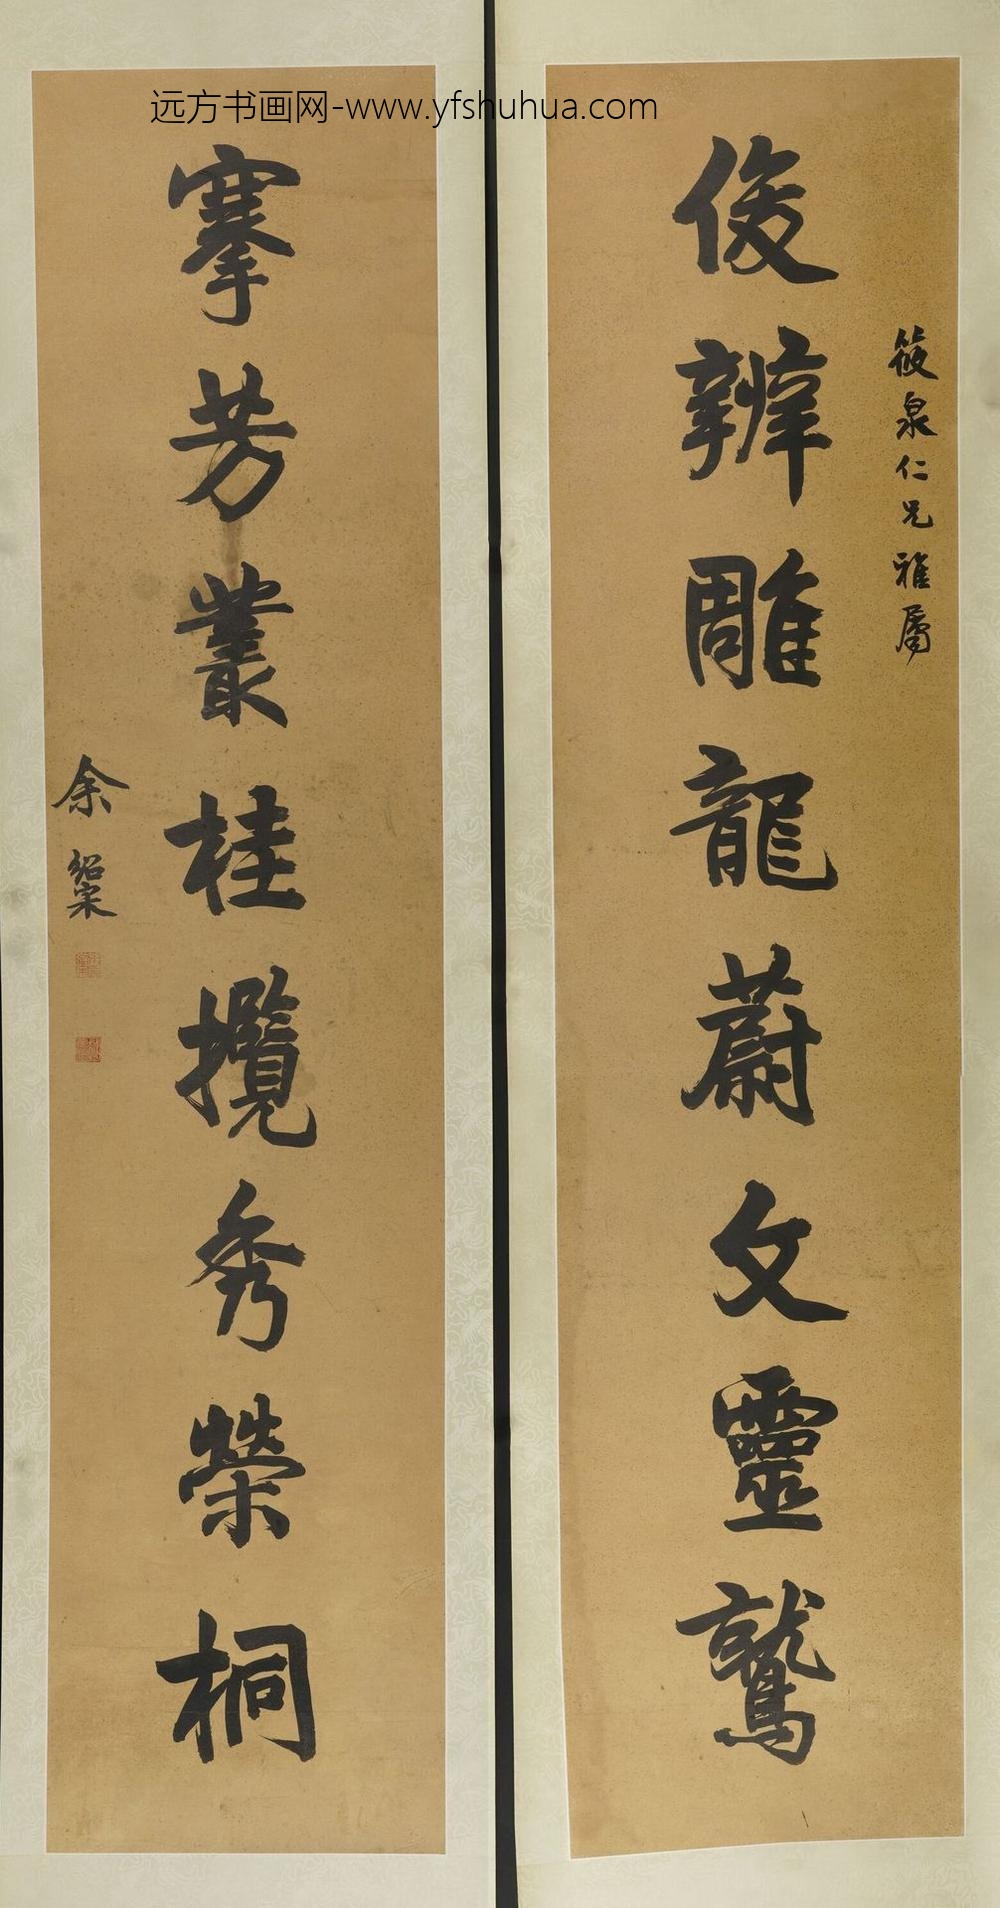 远方书画网-www.yfshuhua.com
筱泉仁兄雅屬
俊辨雕龍蔚文靈鷲
搴芳叢桂攬秀榮桐
余紹宋